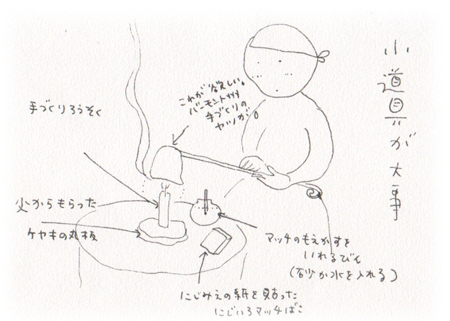 小道具が大事
これが欲しい。
バーモント州
手づくりの
ヤツが。
手づくりろうそく
父からもらった
ケヤキの丸板
マッチのもえかすを
いれるびん
(砂か水を入れる)
にじみえの紙を貼った
にじいろマッチばこ